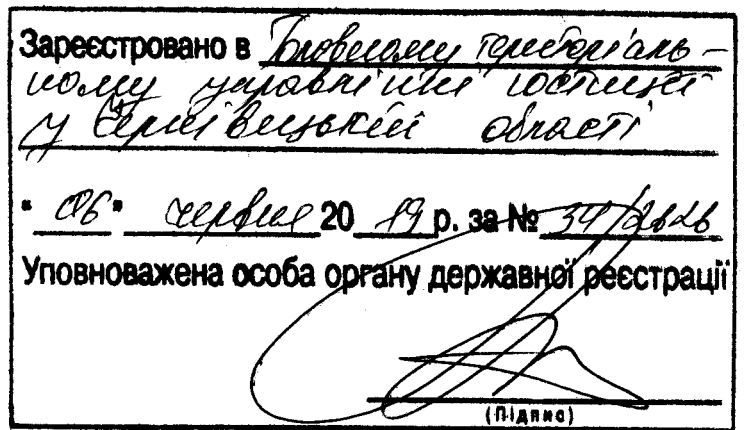 Зареєстровано в Головному територіаль-
ному управлінні юстиції
у Чернівецькій області
"06" червня 2019 р. за № 34/2626
Уповноважена особа органу державної реєстрації
(Підпис)